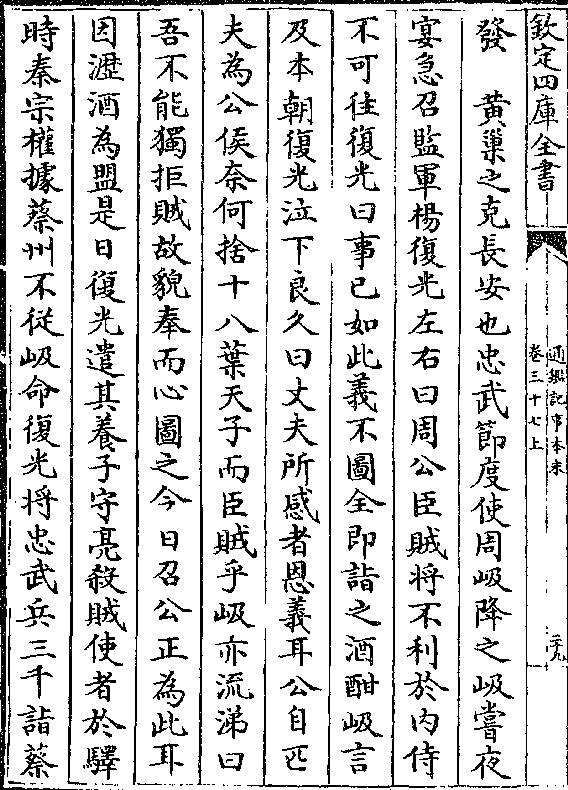 欽定四庫全書
通鑑記事本末
卷三十七上
二十九
發　黃巢之克長安也忠武節度使周岌降之岌嘗夜
宴急召監軍楊復光左右曰周公臣賊將不利於内侍
不可往復光曰事已如此義不圖全即詣之酒酣岌言
及本朝復光泣下良久曰丈夫所感者恩義耳公自匹
夫為公侯奈何捨十八葉天子而臣賊乎岌亦流涕曰
吾不能獨拒賊故貌奉而心圖之今日召公正為此耳
因瀝酒為盟是日復光遣其養子守亮殺賊使者於驛
時秦宗權據蔡州不從岌命復光將忠武兵三千詣蔡